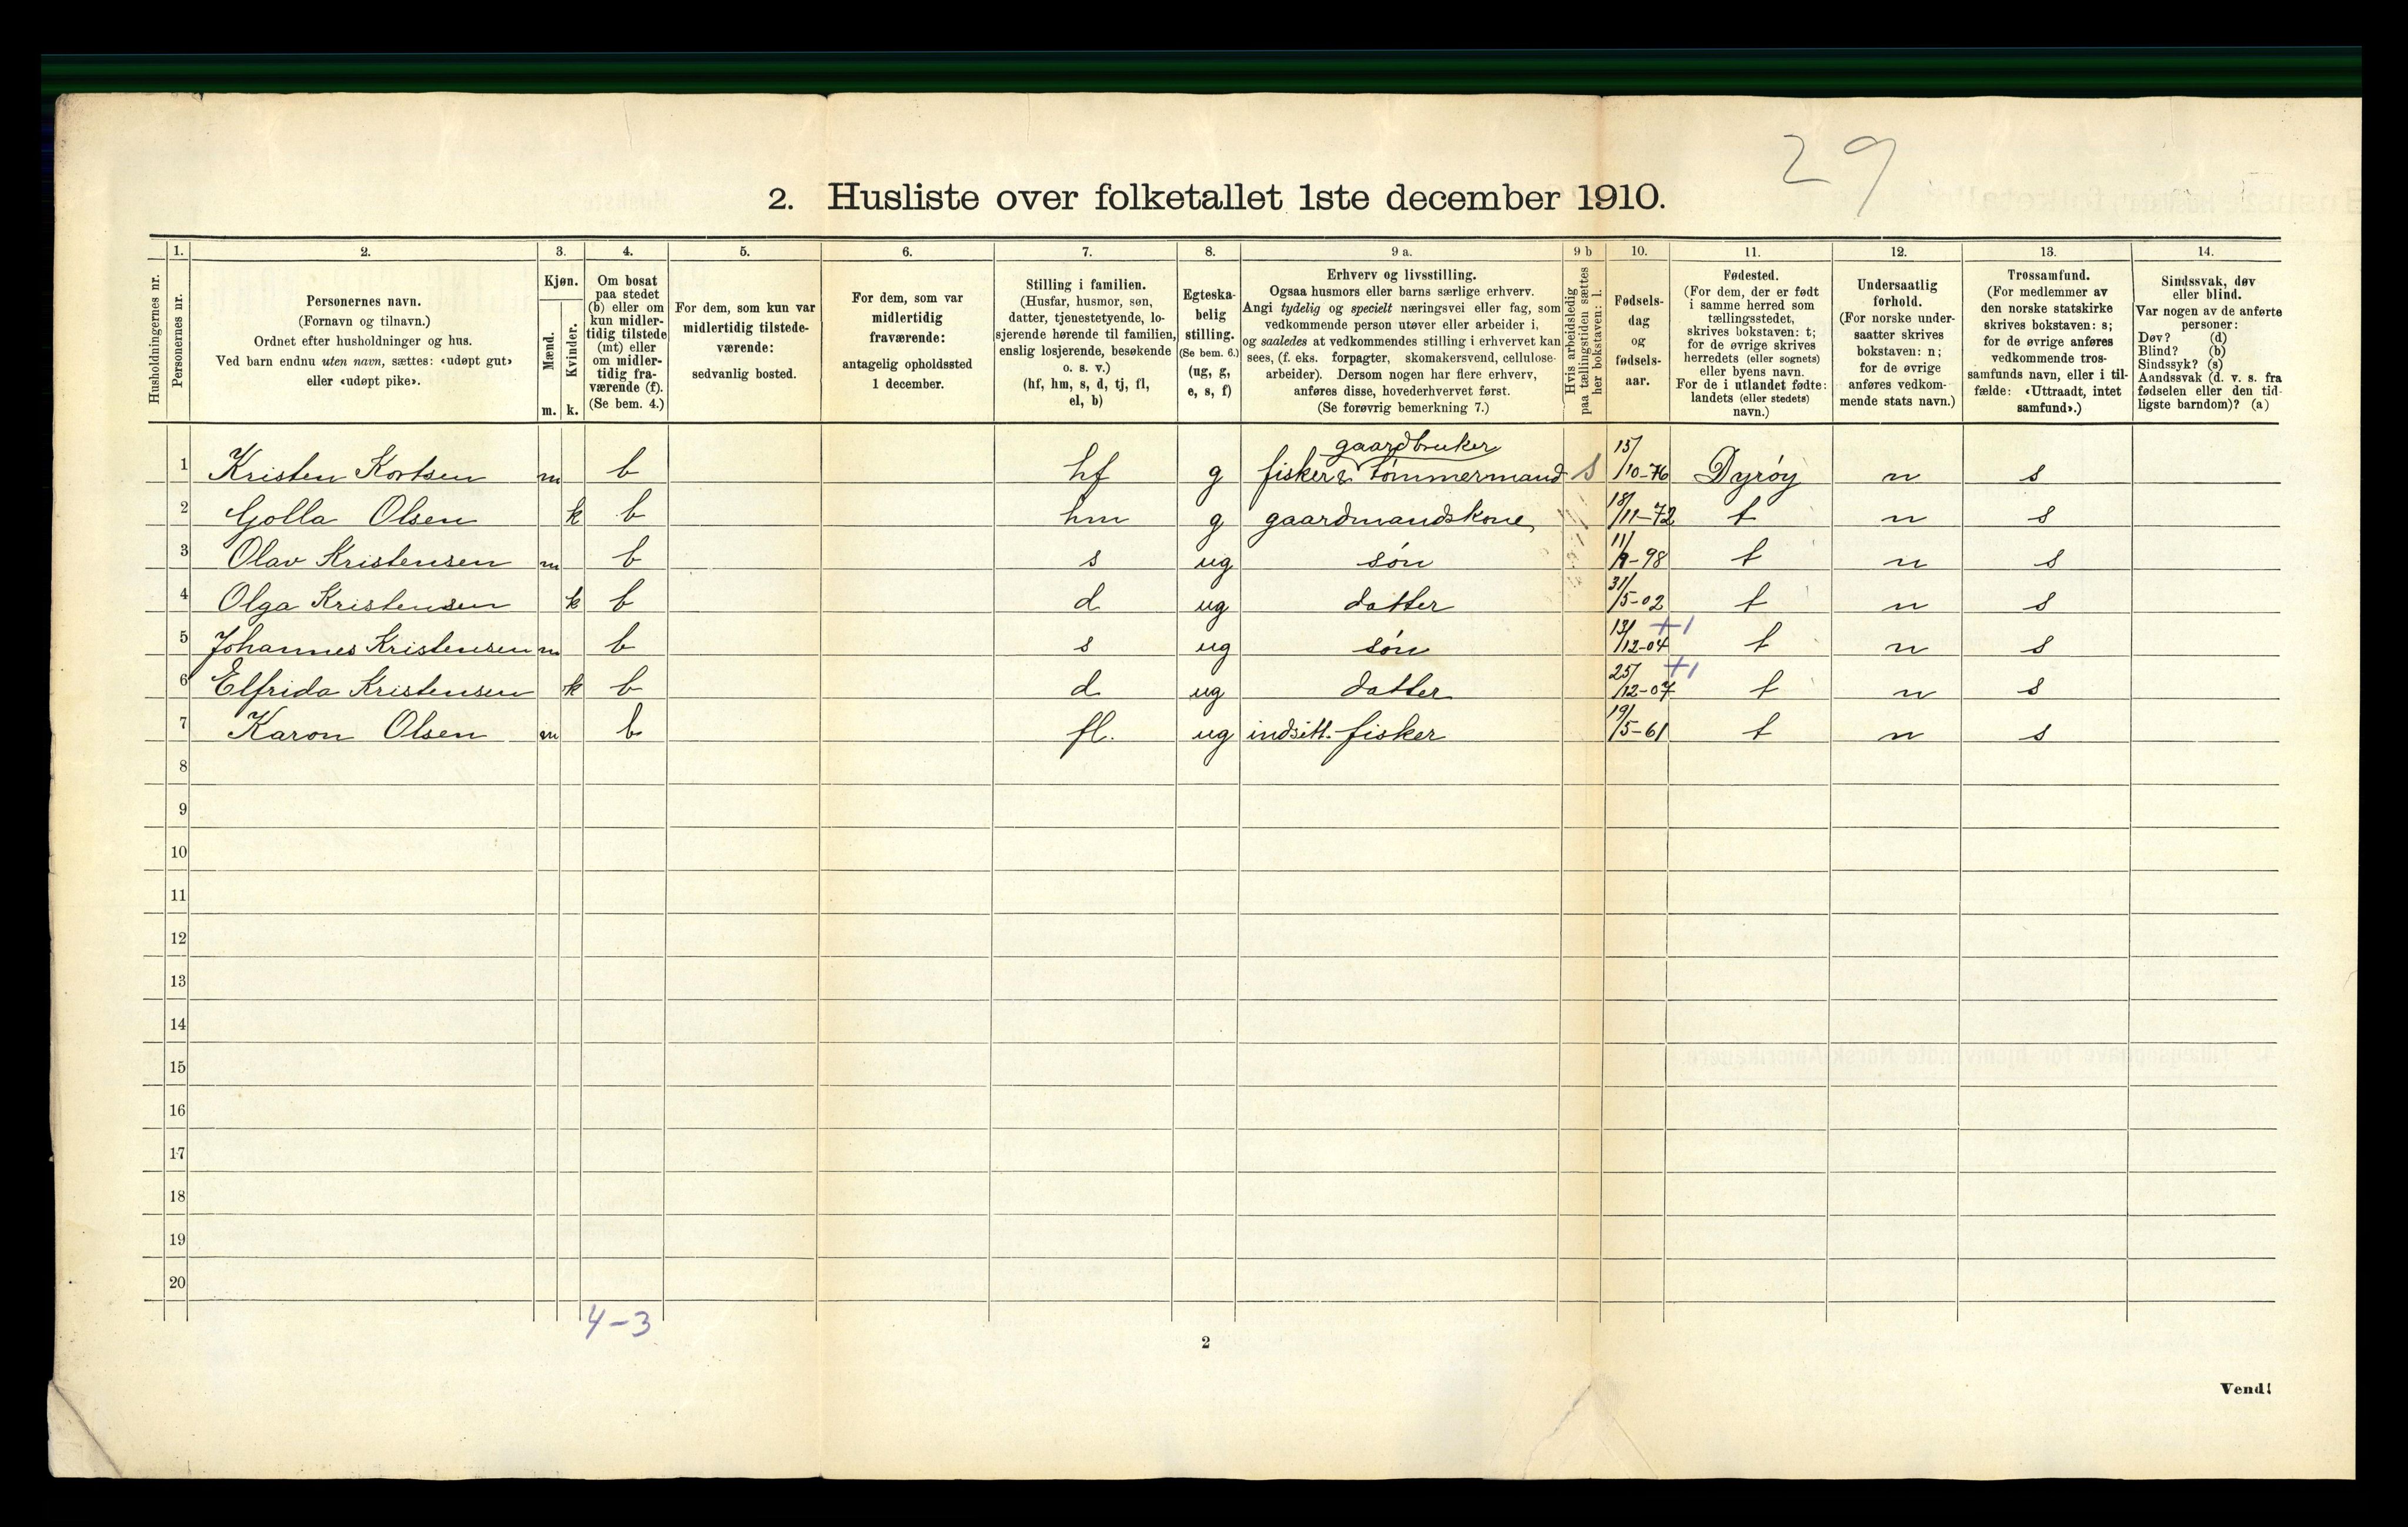 29
2. Husliste over folketallet 1ste december 1910.
Husholdningernes nr.
1.
Personernes nr.
2.
Personernes navn.
(Fornavn og tilnavn.)
Ordnet efter husholdninger og hus.
Ved barn endnu uten navn, sættes: «udøpt gut»
eller «udøpt pike».
3.
Kjøn.
Mænd.
Kvinder.
m. k.
4.
Om bosat
paa stedet
(b) eller om
kun midler-
tidig tilstede
(mt) eller
om midler-
tidig fra-
værende (f).
(Se bem. 4.)
5.
For dem, som kun var
midlertidig tilstede-
værende:
sedvanlig bosted.
6.
For dem, som var
midlertidig
fraværende:
antagelig opholdssted
1 december.
7.
Stilling i familien.
(Husfar, husmor, søn,
datter, tjenestetyende, lo-
sjerende hørende til familien,
enslig losjerende, besøkende
o. s. v.)
(hf, hm, s, d, tj, fl,
el, b)
8.
Egteska-
belig
stilling.
(Se bem. 6.)
(ug, g,
e, s, f)
9 a.
Erhverv og livsstilling.
Ogsaa husmors eller barns særlige erhverv.
Angi tydelig og specielt næringsvei eller fag, som
vedkommende person utøver eller arbeider i,
og saaledes at vedkommendes stilling i erhvervet kan
sees, (f. eks. forpagter, skomakersvend, cellulose-
arbeider). Dersom nogen har flere erhverv,
anføres disse, hovederhvervet først.
(Se forøvrig bemerkning 7.)
9 b
Hvis arbeidsledig
paa tællingstiden sættes
her bokstaven: l.
10.
Fødsels-
dag
og
fødsels-
aar.
11.
Fødested.
(For dem, der er født
i samme herred som
tællingsstedet,
skrives bokstaven: t;
for de øvrige skrives
herredets (eller sognets)
eller byens navn.
For de i utlandet fødte:
landets (eller stedets)
navn.)
12.
Undersaatlig
forhold.
(For norske under-
saatter skrives
bokstaven: n;
for de øvrige
anføres vedkom-
mende stats navn.)
13.
Trossamfund.
(For medlemmer av
den norske statskirke
skrives bokstaven: s;
for de øvrige anføres
vedkommende tros-
samfunds navn, eller i til-
fælde: «Uttraadt, intet
samfund».)
14.
Sindssvak, døv
eller blind.
Var nogen av de anførte
personer:
Døv? (d)
Blind? (b)
Sindssyk? (s)
Aandssvak (d. v. s. fra
fødselen eller den tid-
ligste barndom)? (a)
gaardbruker
1 Kristen Kortsen m b hf g fisker & tømmermand s 15/10-76 Dyrøy n s
2 Golla Olsen k b hm g gaardmandskone 18/11-72 t n s
3 Olav Kristensen m b s ug søn 11/9-98 t n s
4 Olga Kristensen k b d ug datter 31/5-02 t n s
5 Johannes Kristensen m b s ug søn 13/12-04 +1 t n s
6 Elfrida Kristensen k b d ug datter 25/12-07 +1 t n s
7 Karon Olsen m b fl. ug indsitt. fisker 19/5-61 t n s
8
9
10
11
12
13
14
15
16
17
18
19
20
4-3
2
Vend!